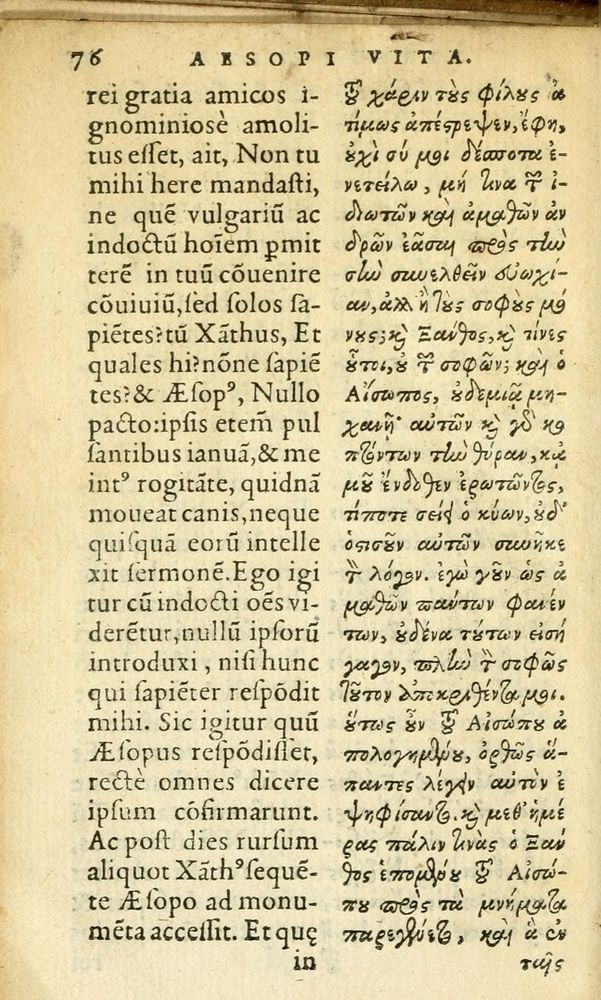 76 AESOPI VITA.
rei gratia amicos i-
gnominiosè amoli-
tus eſſet, ait, Non tu
mihi here mandaſti,
ne quē vulgariū ac
indoctū hoīem ꝑmit
terē in tuū cōuenire
cōuiuiū, ſed ſolos ſa-
piētes? tū Xāthus, Et
quales hi? nōne ſapiē
tes? & Æſopꝰ, Nullo
pacto: ipſis etem̄ pul
ſantibus ianuā, & me
intꝰ rogitāte, quidnā
moueat canis, neque
quiſquā eorū intelle
xit ſermonē. Ego igi
tur cū indocti oēs vi-
derētur, nullū ipſorū
introduxi, niſi hunc
qui ſapiēter reſpōdit
mihi. Sic igitur quū
Æſopus reſpōdiſſet,
rectè omnes dicere
ipſum cōfirmarunt.
Ac poſt dies rurſum
aliquot Xāthꝰ ſequē-
te Æſopo ad monu-
mēta acceſſit. Et quę
in
τοῦ χάριν τοὺς φίλους ἀ
τίμως ἀπέστρεψεν, ἔφη,
οὐχὶ σύ μοι δέσποτα ἐ-
νετείλω, μή τινα τῶν ἰ-
διωτῶν καὶ ἀμαθῶν ἀν
δρῶν ἐᾶσαι πρὸς τὴν
σὴν συνελθεῖν εὐωχί-
αν, ἀλλ' ἢ τοὺς σοφοὺς μό
νους; καὶ Ξανθος, καὶ τίνες
οὗτοι, οὐ τῶν σοφῶν; καὶ ὁ
Αἴσωπος, οὐδεμιᾷ μη-
χανῇ· αὐτῶν καὶ γὸ κο
πτόντων τὴν θύραν, κἀ
μοῦ ἔνδοθεν ἐρωτῶντος,
τίποτε σείει ὁ κύων, οὐδ'
ὁστισοῦν αὐτῶν συνῆκε
τὸν λόγον. ἐγὼ γοῦν ὡς ἀ
μαθῶν πάντων φανέν
των, οὐδένα τούτων εἰσή
γαγον, πλὴν τὸν σοφῶς
τοῦτον ἀποκριθέντα μοι.
οὕτως οὖν τοῦ Αἰσώπου ἀ
πολογημένου, ὀρθῶς ἅ-
παντες λέγειν αὐτὸν ἐ
ψηφίσαντο. καὶ μεθ' ἡμέ
ρας πάλιν τινὰς ὁ Ξαν
θος ἑπομένου τοῦ Αἰσώ-
που πρὸς τὰ μνήματα
παρεγένετο, καὶ ἃ ἐν
ταῖς